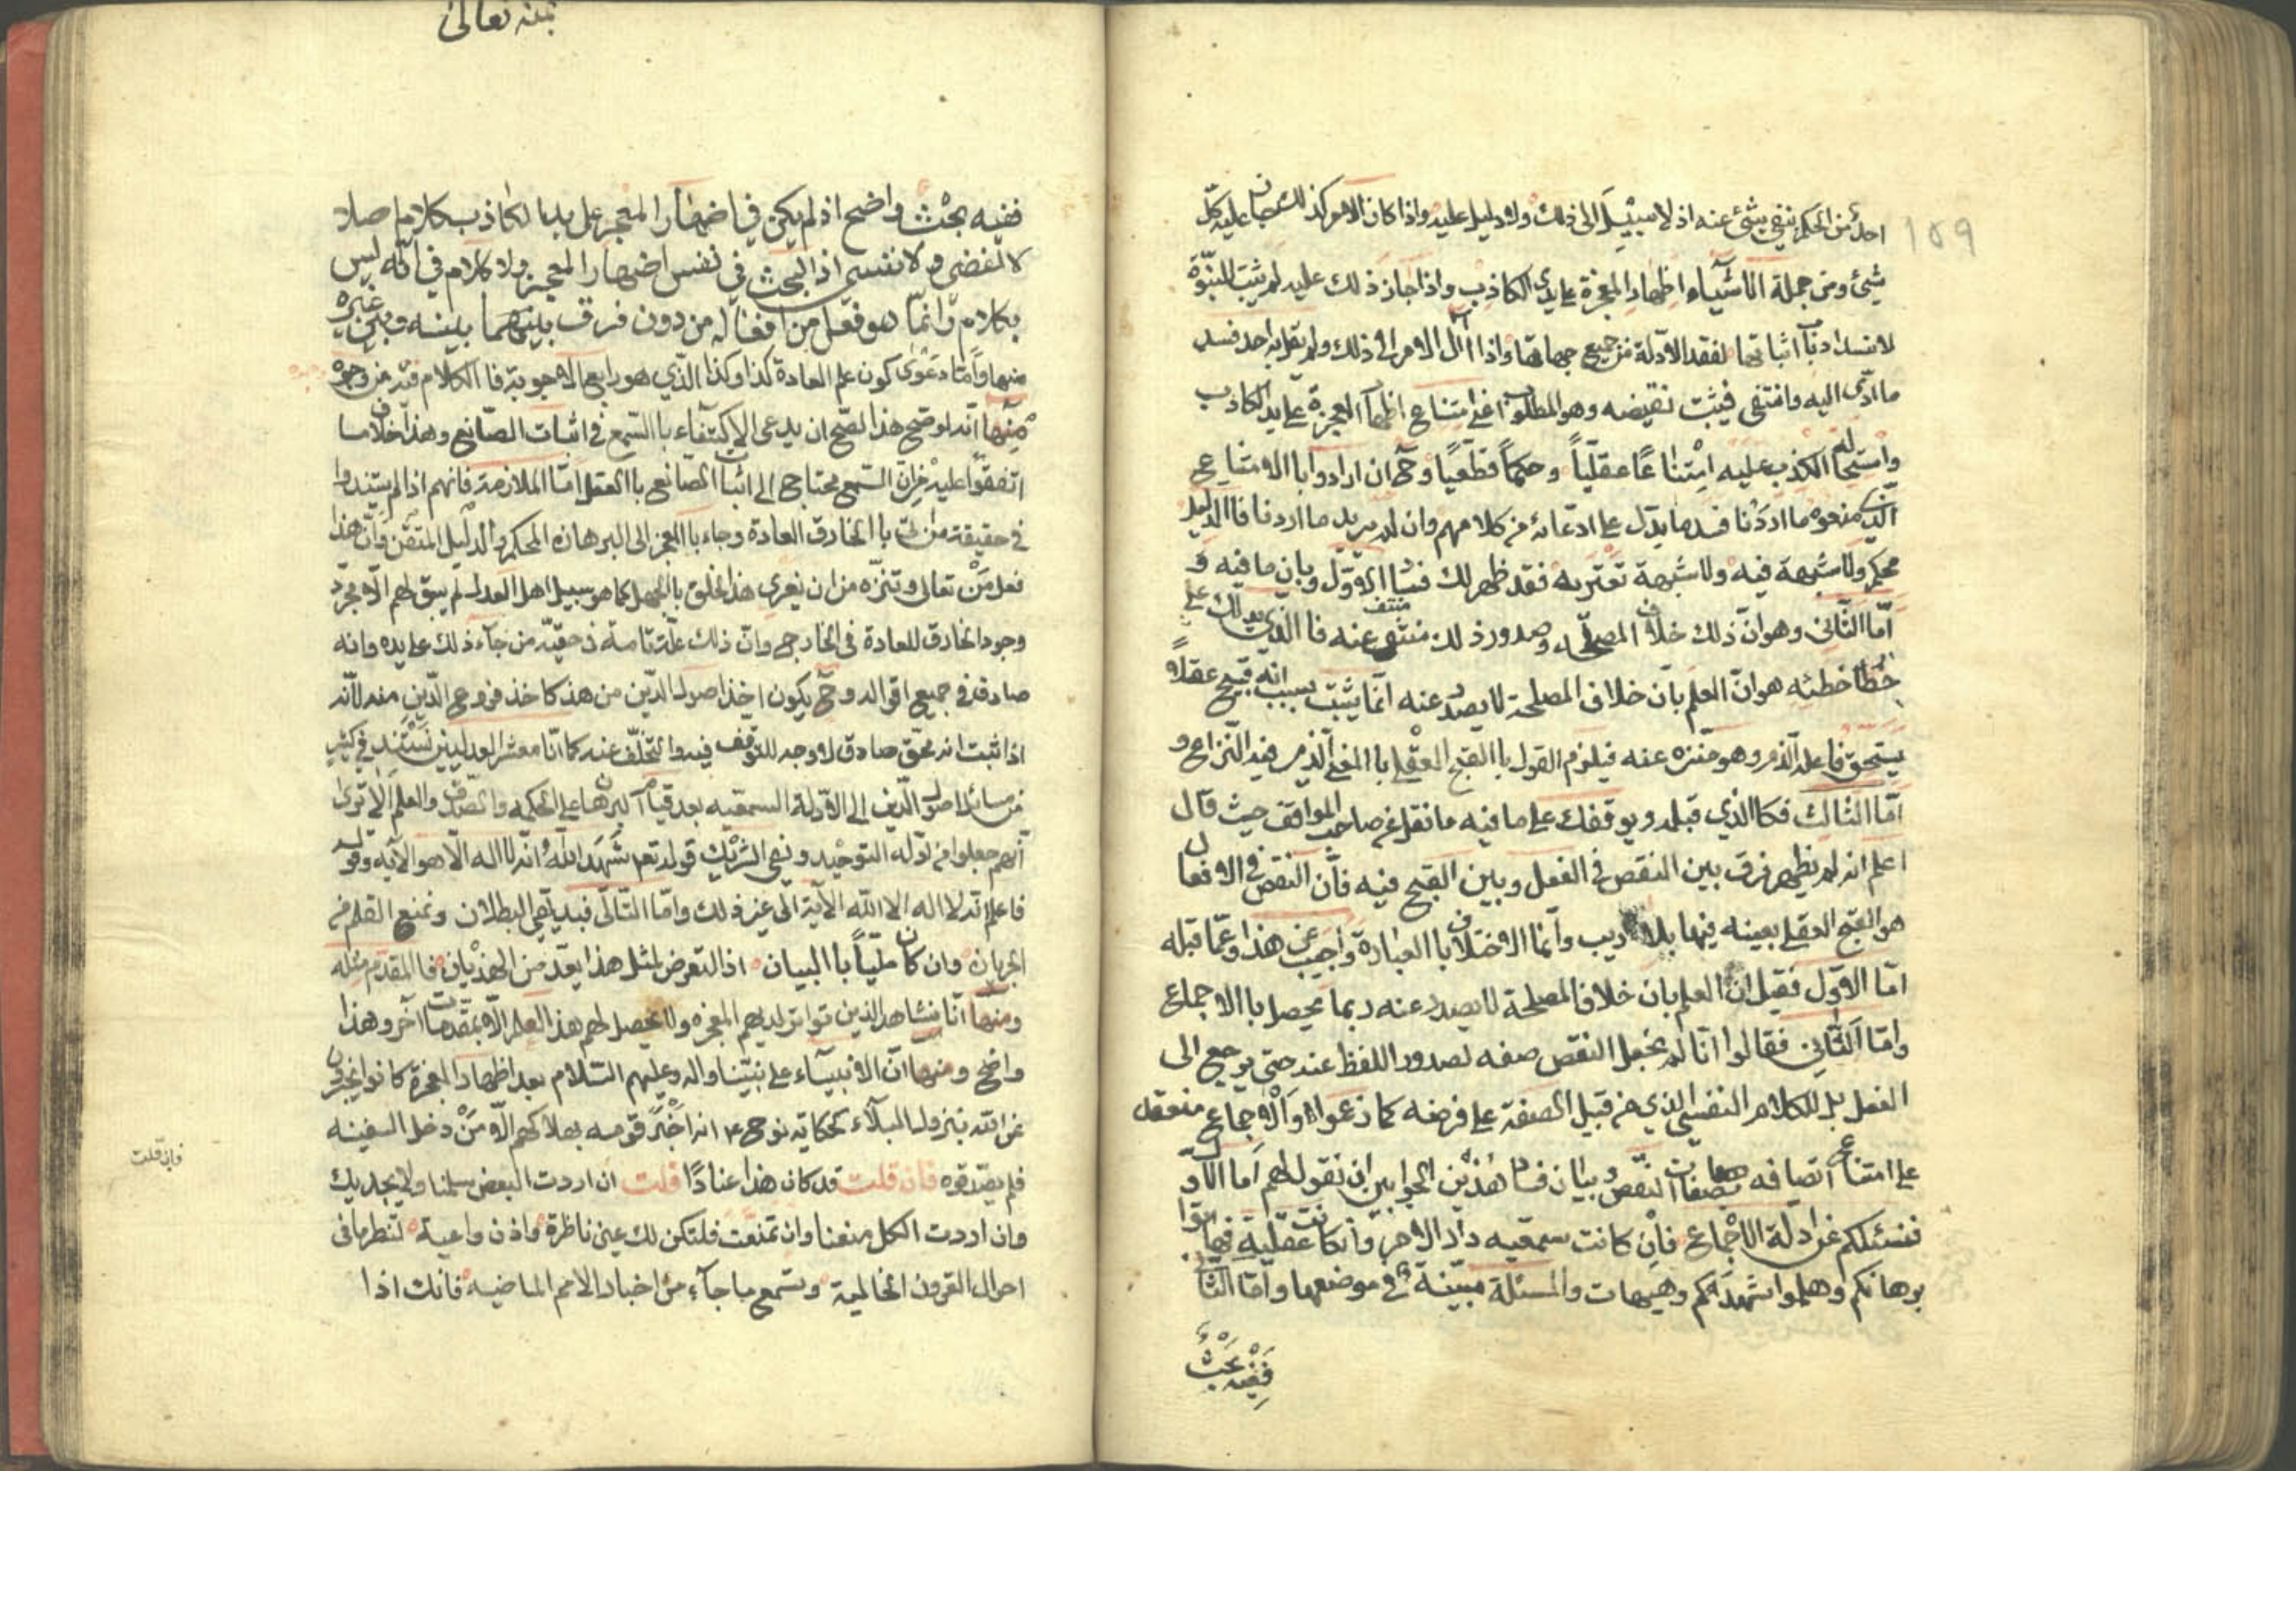 ١٥٩
احد من الحكم بنفي شئ عنه اذ لا سبيل الى ذلك ولا دليل عليه واذا كان الامر كذلك جاز عليه كل
شئ ومن جملة الاشياء اظهار المعجزة على يدي الكاذب واذا جاز ذلك عليه لم يثبت النبوة
لانسداد باب اثباتها لفقد الادلة من جميع جهاتها واذا آل الامر الى ذلك ولم يقل به احد فسد
ما ادى اليه وانتفى فيثبت نقيضه وهو المطلوب اعني امتناع اظهار المعجزة على يد الكاذب
واستحالة الكذب عليه امتناعا عقليا وحكما قطعيا وح ان ارادوا بالامتناع
الذي منعوه ما اردنا فسد ما يدل على ادعائه من كلامهم وان لم يريد ما اردنا فالدليل
محكم ولا شبهة فيه ولا شبهة تعتريه فقد ظهر لك فساد الاول وبان ما فيه و
اما الثاني وهو ان ذلك خلاف المصلحة وصدور ذلك منتف عنه فالذي يدلك على
خطأ خطيئه هو ان العلم بان خلاف المصلحة لا يصدر عنه انما يثبت بسبب انه قبيح عقلا
يستحق فاعله الذم وهو منزه عنه فيلزم القول بالقبح العقلي بالمعنى الذي فيه النزاع و
اما الثالث فكالذي قبله ويوقفك على ما فيه ما نقل عن صاحب المواقف حيث قال
اعلم انه لم يظهر فرق بين النقص في الفعل وبين القبح فيه فان النقص في الافعال
هو القبح العقلي بعينه فيها بلا ريب وانما الاختلاف بالعبارة واجيب عن هذا وعما قبله
اما الاول فقيل ان العلم بان خلاف المصلحة لا يصدر عنه ربما يحصل بالاجماع
واما الثاني فقالوا انا لم نجعل النقص صفه لصدور اللفظ عنه حتى يرجع الى
الفعل بل للكلام النفسي الذي هو من قبيل الصفة على فرضه كما زعموا والاجماع منعقد
على امتناع اتصافه بصفات النقص وبيان فساد هذين الجوابين ان نقول لهم اما الاول
فنسئلكم عن ادلة الاجماع فان كانت سمعيه دار الامر وان كانت عقلية فهاتوا
برهانكم وهلموا شهداءكم وهيهات والمسئلة مبينة في موضعها واما الثاني
ففيه بحث
بمنه تعالى
ففيه بحث واضح اذ لم يكن في اضهار المعجز على يد الكاذب كلام اصلا
لا لفضي ولا نفسي اذ البحث في نفس اضهار المعجز ولا كلام في انه ليس
بكلام وانما هو فعل من افعاله من دون فرق بينهما بينه وبين غيره
منها واما دعوى كون علم العادة كذا وكذا الذي هو رابع الاجوبة فالكلام فيه من وجوه
منها انه لو صح هذا لصح ان يدعى الاكتفاء بالسمع في اثبات الصانع وهذا خلاف ما
اتفقوا عليه من ان السمع محتاج الى اثبات الصانع بالعقل اما الملازمة فانهم اذا لم يستندوا
في حقيقة من اتى بالخارق العادة وجاء بالمعجز الى البرهان المحكم والدليل المتقن وان هذا
فعل من تعالى وتنزه من ان يغرى هذا الخلق بالجهل كما هو سبيل اهل العدل لم يبق لهم الا مجرد
وجود الخارق للعادة في الخارج وان ذلك علة تامة في حقيه من جاء ذلك على يده وانه
صادق في جميع اقواله وح يكون اخذ اصول الدين من هذا كاخذ فروع الدين منه لانه
اذا ثبت انه محق صادق لا وجه للتوقف فيه والتخلف عنه كما انا معشر العدليين نستند في كثير
من مسائل اصول الدين الى الادلة السمعيه بعد قيام البرهان على الحكمه والصدق والعلم الا ترى
انهم جعلوا من ادلة التوحيد ونفي الشريك قوله تعم شهد الله انه لا اله الا هو الآيه وقوله
فاعلم انه لا اله الا الله الآية الى غير ذلك واما التالي فبديهي البطلان ونمنع القلم من
الجريان وان كان مليا بالبيان اذ التعرض لمثل هذا يعد من الهذيان فالمقدم مثله
ومنها انا نشاهد الذين تواتر لديهم المعجزه ولا يحصل لهم هذا العلم الا بمقدمات اخر وهذا
واضح ومنها ان الانبياء على نبينا واله وعليهم السلام بعد اظهار المعجزة كانوا يخبرون
عن الله بنزول البلاء كحكاية نوح ع انه اخبر قومه بهلاكهم الا من دخل السفينه
فلم يصدقوه فان قلت قد كان هذا عنادا قلت ان اردت البعض سلمنا ولا يجديك
وان اردت الكل منعنا وان تمنعت فلتكن لك عين ناظرة واذن واعية لتنظر ما في
احوال القرون الخالية وتسمع ما جاء من اخبار الامم الماضيه فانك اذا
فان قلت